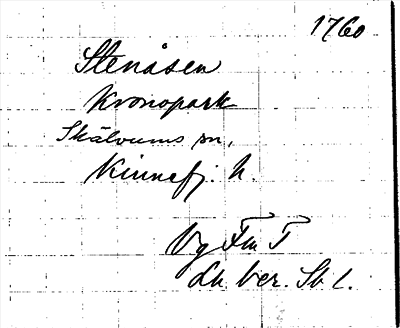 1760
Stenåsen
Kronopark
Skälvums sn,
Kinnefj. h.
Vg Fm T
Lh. ber. Sb 1.